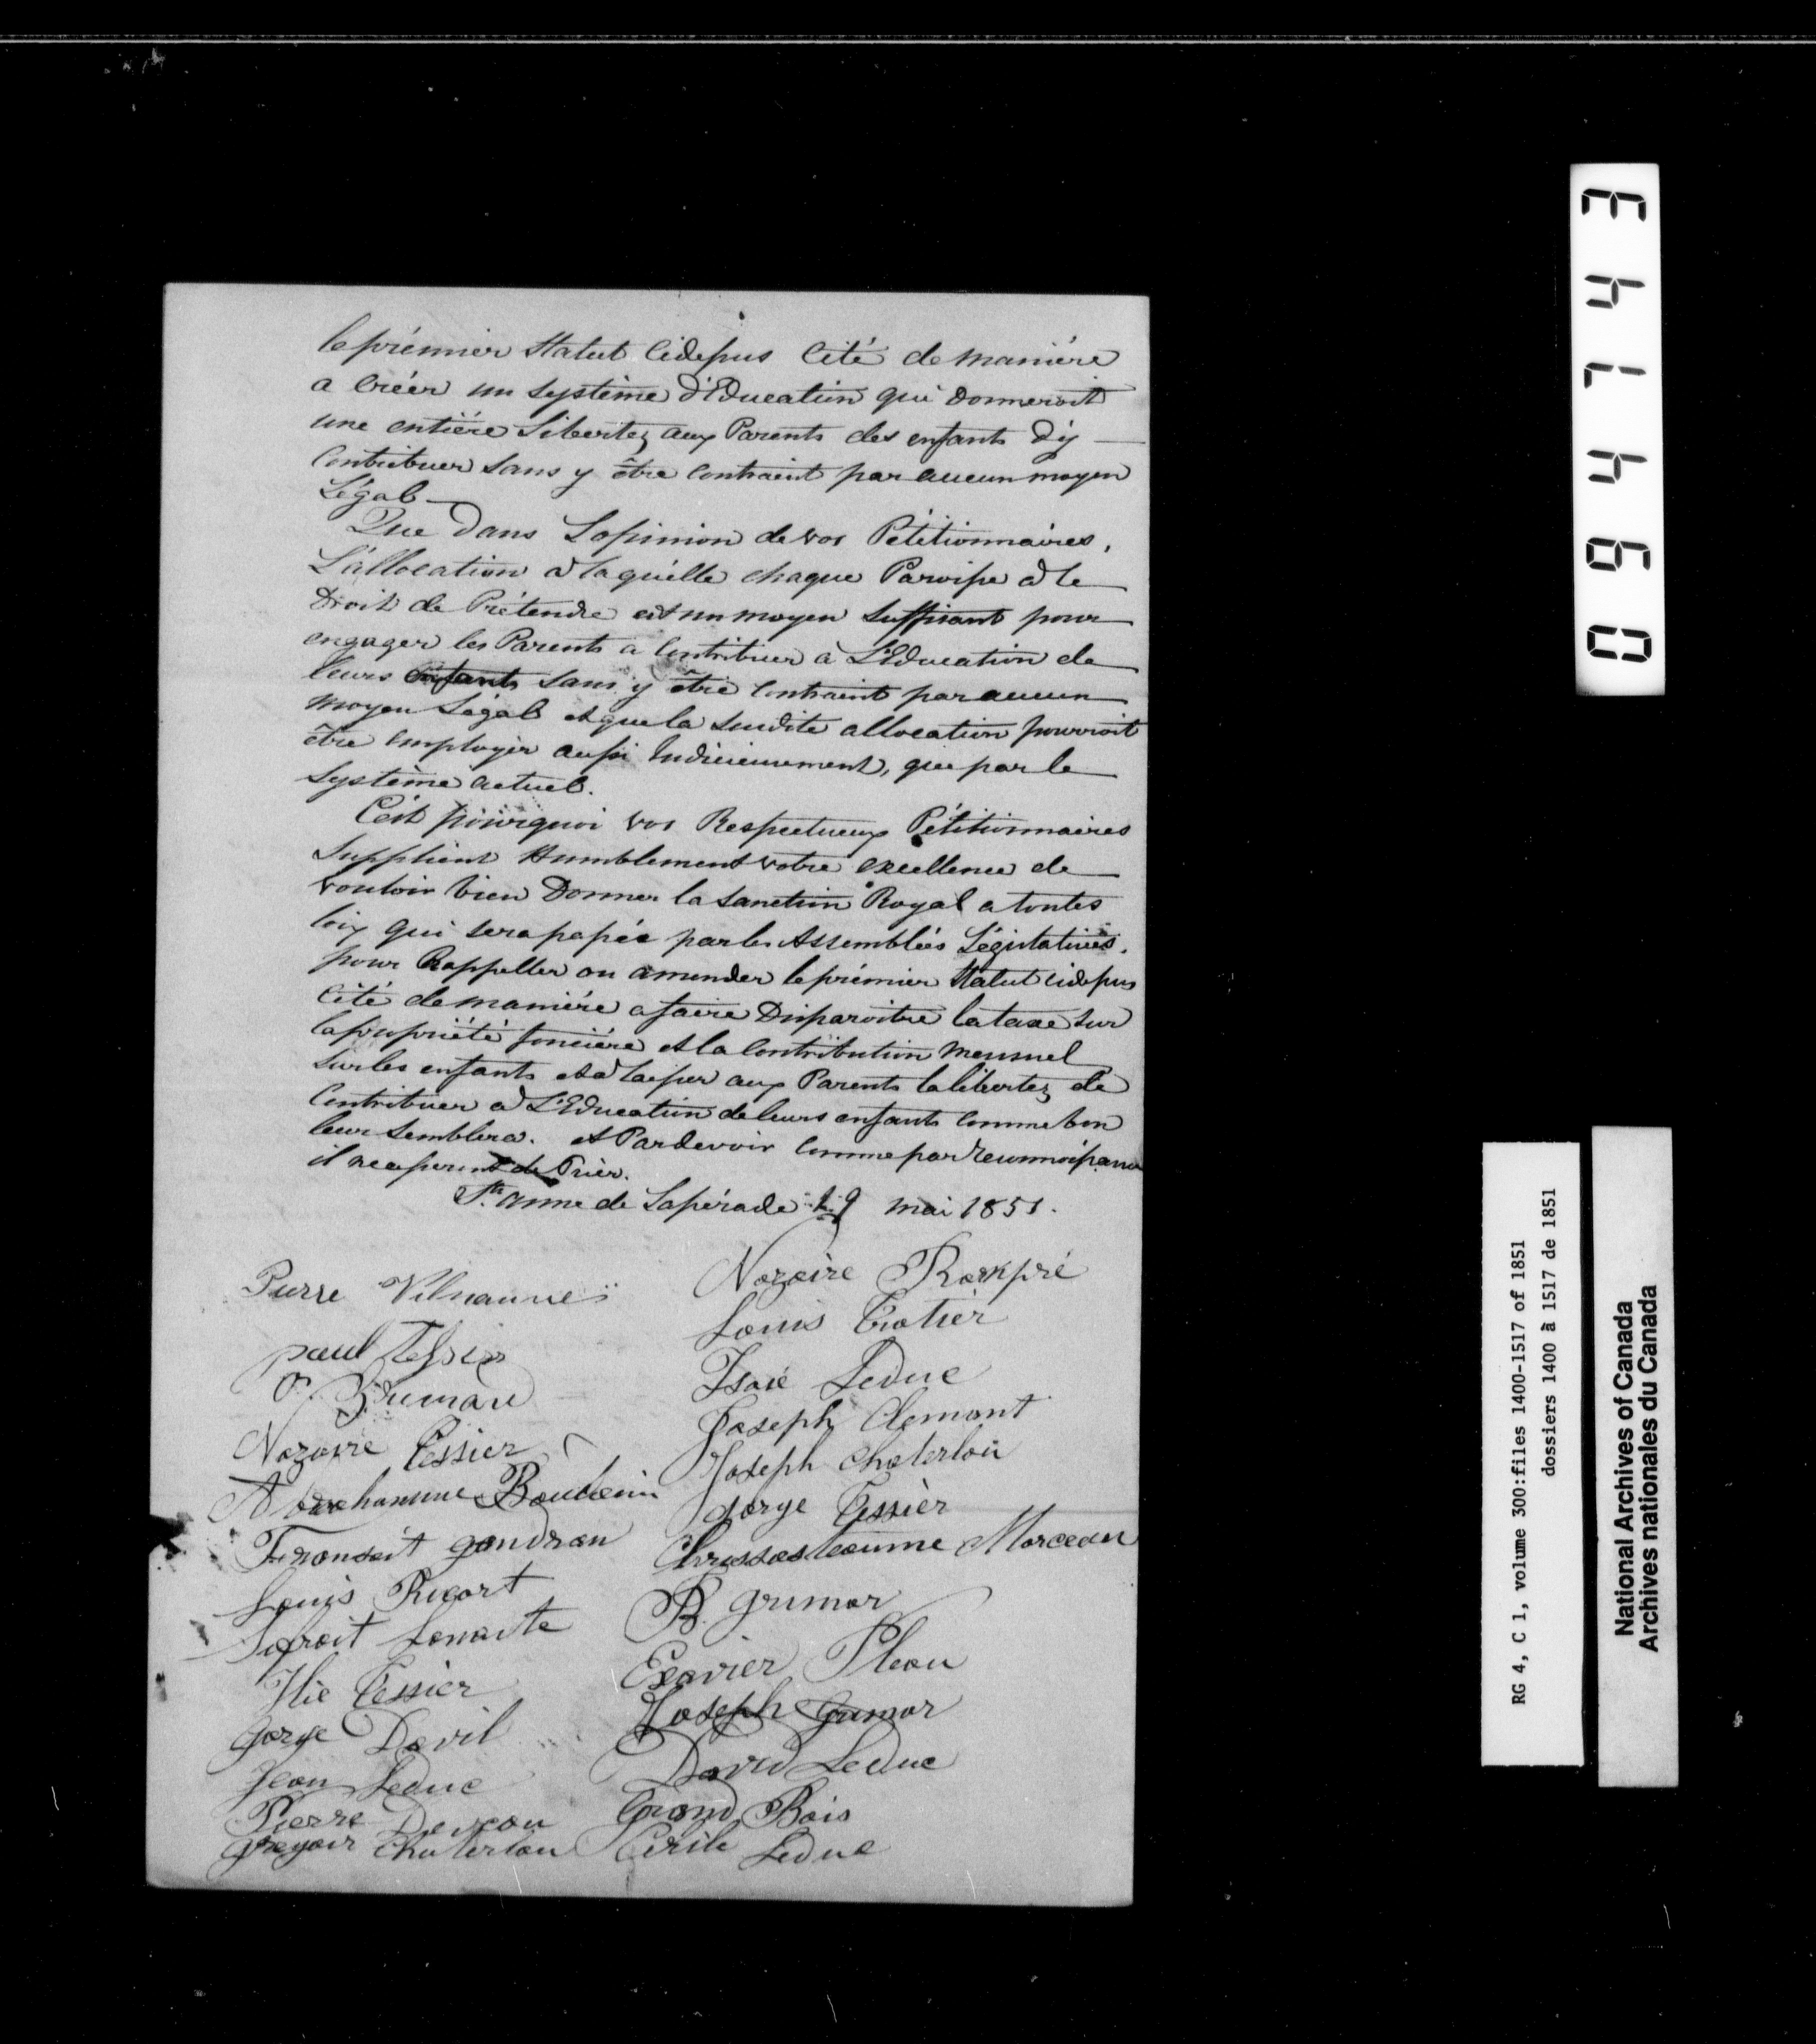 le prémier Statut Cidessus Cité de maniére
a Créer un Système d'Education qui Donneroit
une entiére Libertez aux Parents des enfants D'y
Contribuer Sans y être Contraint par aucun moyen
Légal
Que Dans L'opinion de vos Pétitionnaires,
L'allocation a laquélle chaque Paroisse a le
Droit de Prétendre est un moyen Suffisant pour
engager les Parents a Contribuer à L'Education de
leurs Enfants Sans y être Contraint par aucun
moyen Légal et que la Susdite allocation pourroit
être employér aussi Judicieusement, que par le
Système actuel.
C'est pourquoi vos Respectueux Pétitionnaires
Supplient Humblement votre excellence de
vouloir bien Donner la Sanction Royal a toutes
loix qui sera passée par les Assemblées Législatives,
pour Rappeller ou amender le prémier Statut cidessus
Cité de maniére a faire Disparoitre la taxe Sur
la propriété fonciére et la Contribution Mensuel
Sur les enfants et a laisser aux Parents la libertez de
Contribuer a L'Education de leurs enfants Comme bon
leur Semblera. et Par devoir Comme par reconnoissance
il ne cesseront de Prier.
Ste. Anne de Lapérade 19 mai 1851.
Pierre
Nazaire Rompré
Louis Trotier
paul Tessier
Isaïe Leduc
Joseph Clemant
Nazaire Tessier
Joseph Chaterlain
Baudouin
Jorge Tessier
gendron
Chrissostaume Marceau
Louis Ricart
B. grimar
Exavier Pleau
Ilie Tessier
Joseph Grimar
Jorge David
David Leduc
Jean Leduc
Grand Bois
Pierre
Cirile Leduc
gregoir Chaterlain
094743
RG 4, C 1, volume 300:files 1400-1517 of 1851
dossiers 1400 à 1517 de 1851
National Archives of Canada
Archives nationales du Canada